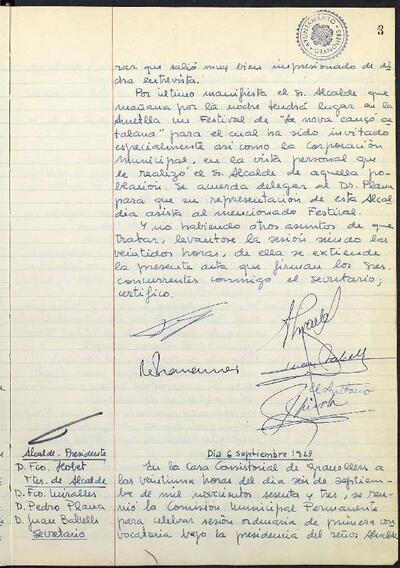 3
AYUNTAMIENTO
GRANOLLERS
zar que salió muy bien impresionado de di
cha entrevista.
Por último manifiesta el Sr. Alcalde que
mañana por la noche tendrá lugar en la
Ametlla un Festival de "la nova cançó ca
talana" para el cual ha sido invitado
especialmente así como la Corporación
Municipal, en la visita personal que
le realizó el Sr. Alcalde de aquella po-
blación. Se acuerda delegar al Dr. Plana
para que en representación de esta Alcal
día asista al mencionado Festival.
Y no habiendo otros asuntos de que
tratar, levantose la sesión siendo las
veintidos horas, de ella se extiende
la presente acta que firman los Sres.
concurrentes conmigo el secretario;
certifico.
El Secretario
Dia 6 septiembre 1963
Alcalde-Presidente
D. Fco. Llobet
Ttes. de Alcalde
D. Fco. Miralles
D. Pedro Plana
D. Juan Batlells
Secretario
En la Casa Consistorial de Granollers a
las veintiuna horas del día seis de septiem-
bre de mil novecientos sesenta y tres, se reu-
nió la Comisión Municipal Permanente
para celebrar sesión ordinaria de primera con
vocatoria bajo la presidencia del señor Alcalde